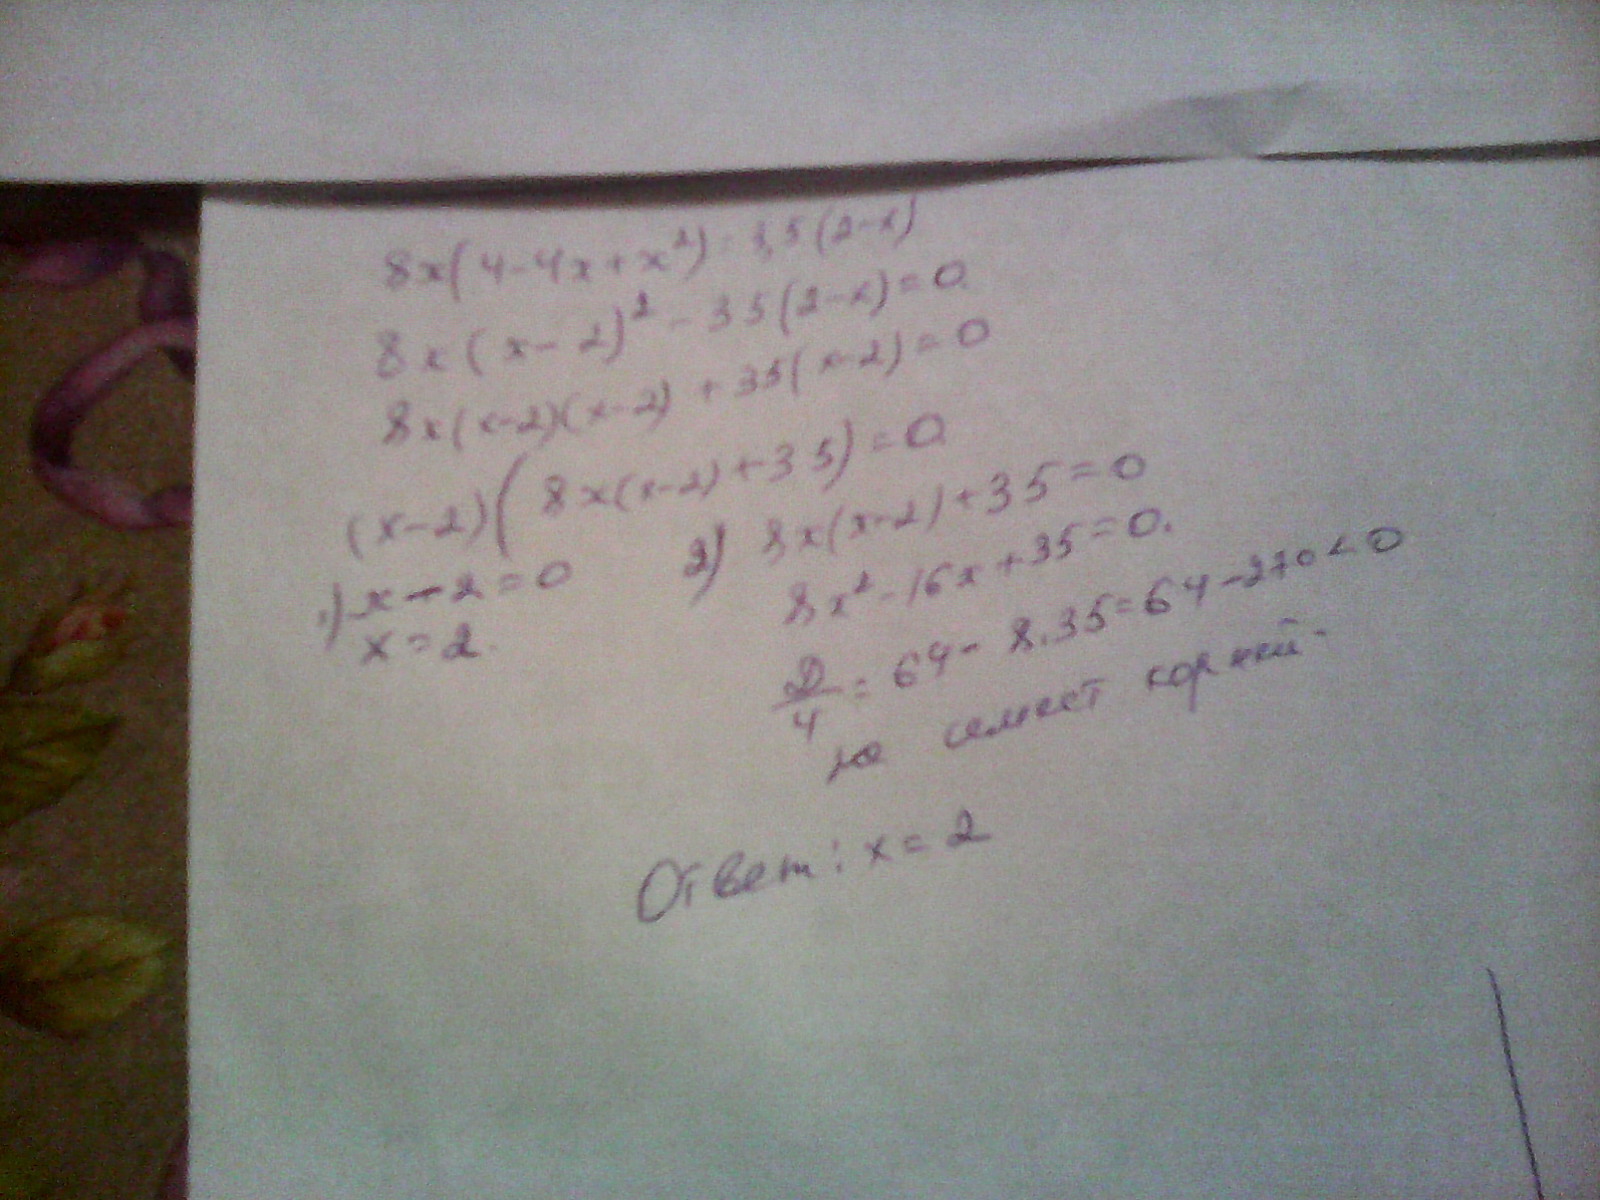 8x(4-4x+x²)=35(2-x)
8x(x-2)²-35(2-x)=0
8x(x-2)(x-2)+35(x-2)=0
(x-2)(8x(x-2)+35)=0
1) x-2=0
x=2.
2) 8x(x-2)+35=0
8x²-16x+35=0.
D/4=64-8.35=64-270<0
корней.
Ответ: x=2